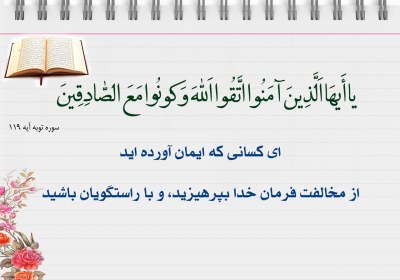 یا أَیهَا الَّذِینَ آمَنُوا اتَّقُوا اللَّهَ وَ کونُوا مَعَ الصَّادِقِینَ
سوره توبه آیه ۱۱۹
ای کسانی که ایمان آورده اید
از مخالفت فرمان خدا بپرهیزید، و با راستگویان باشید